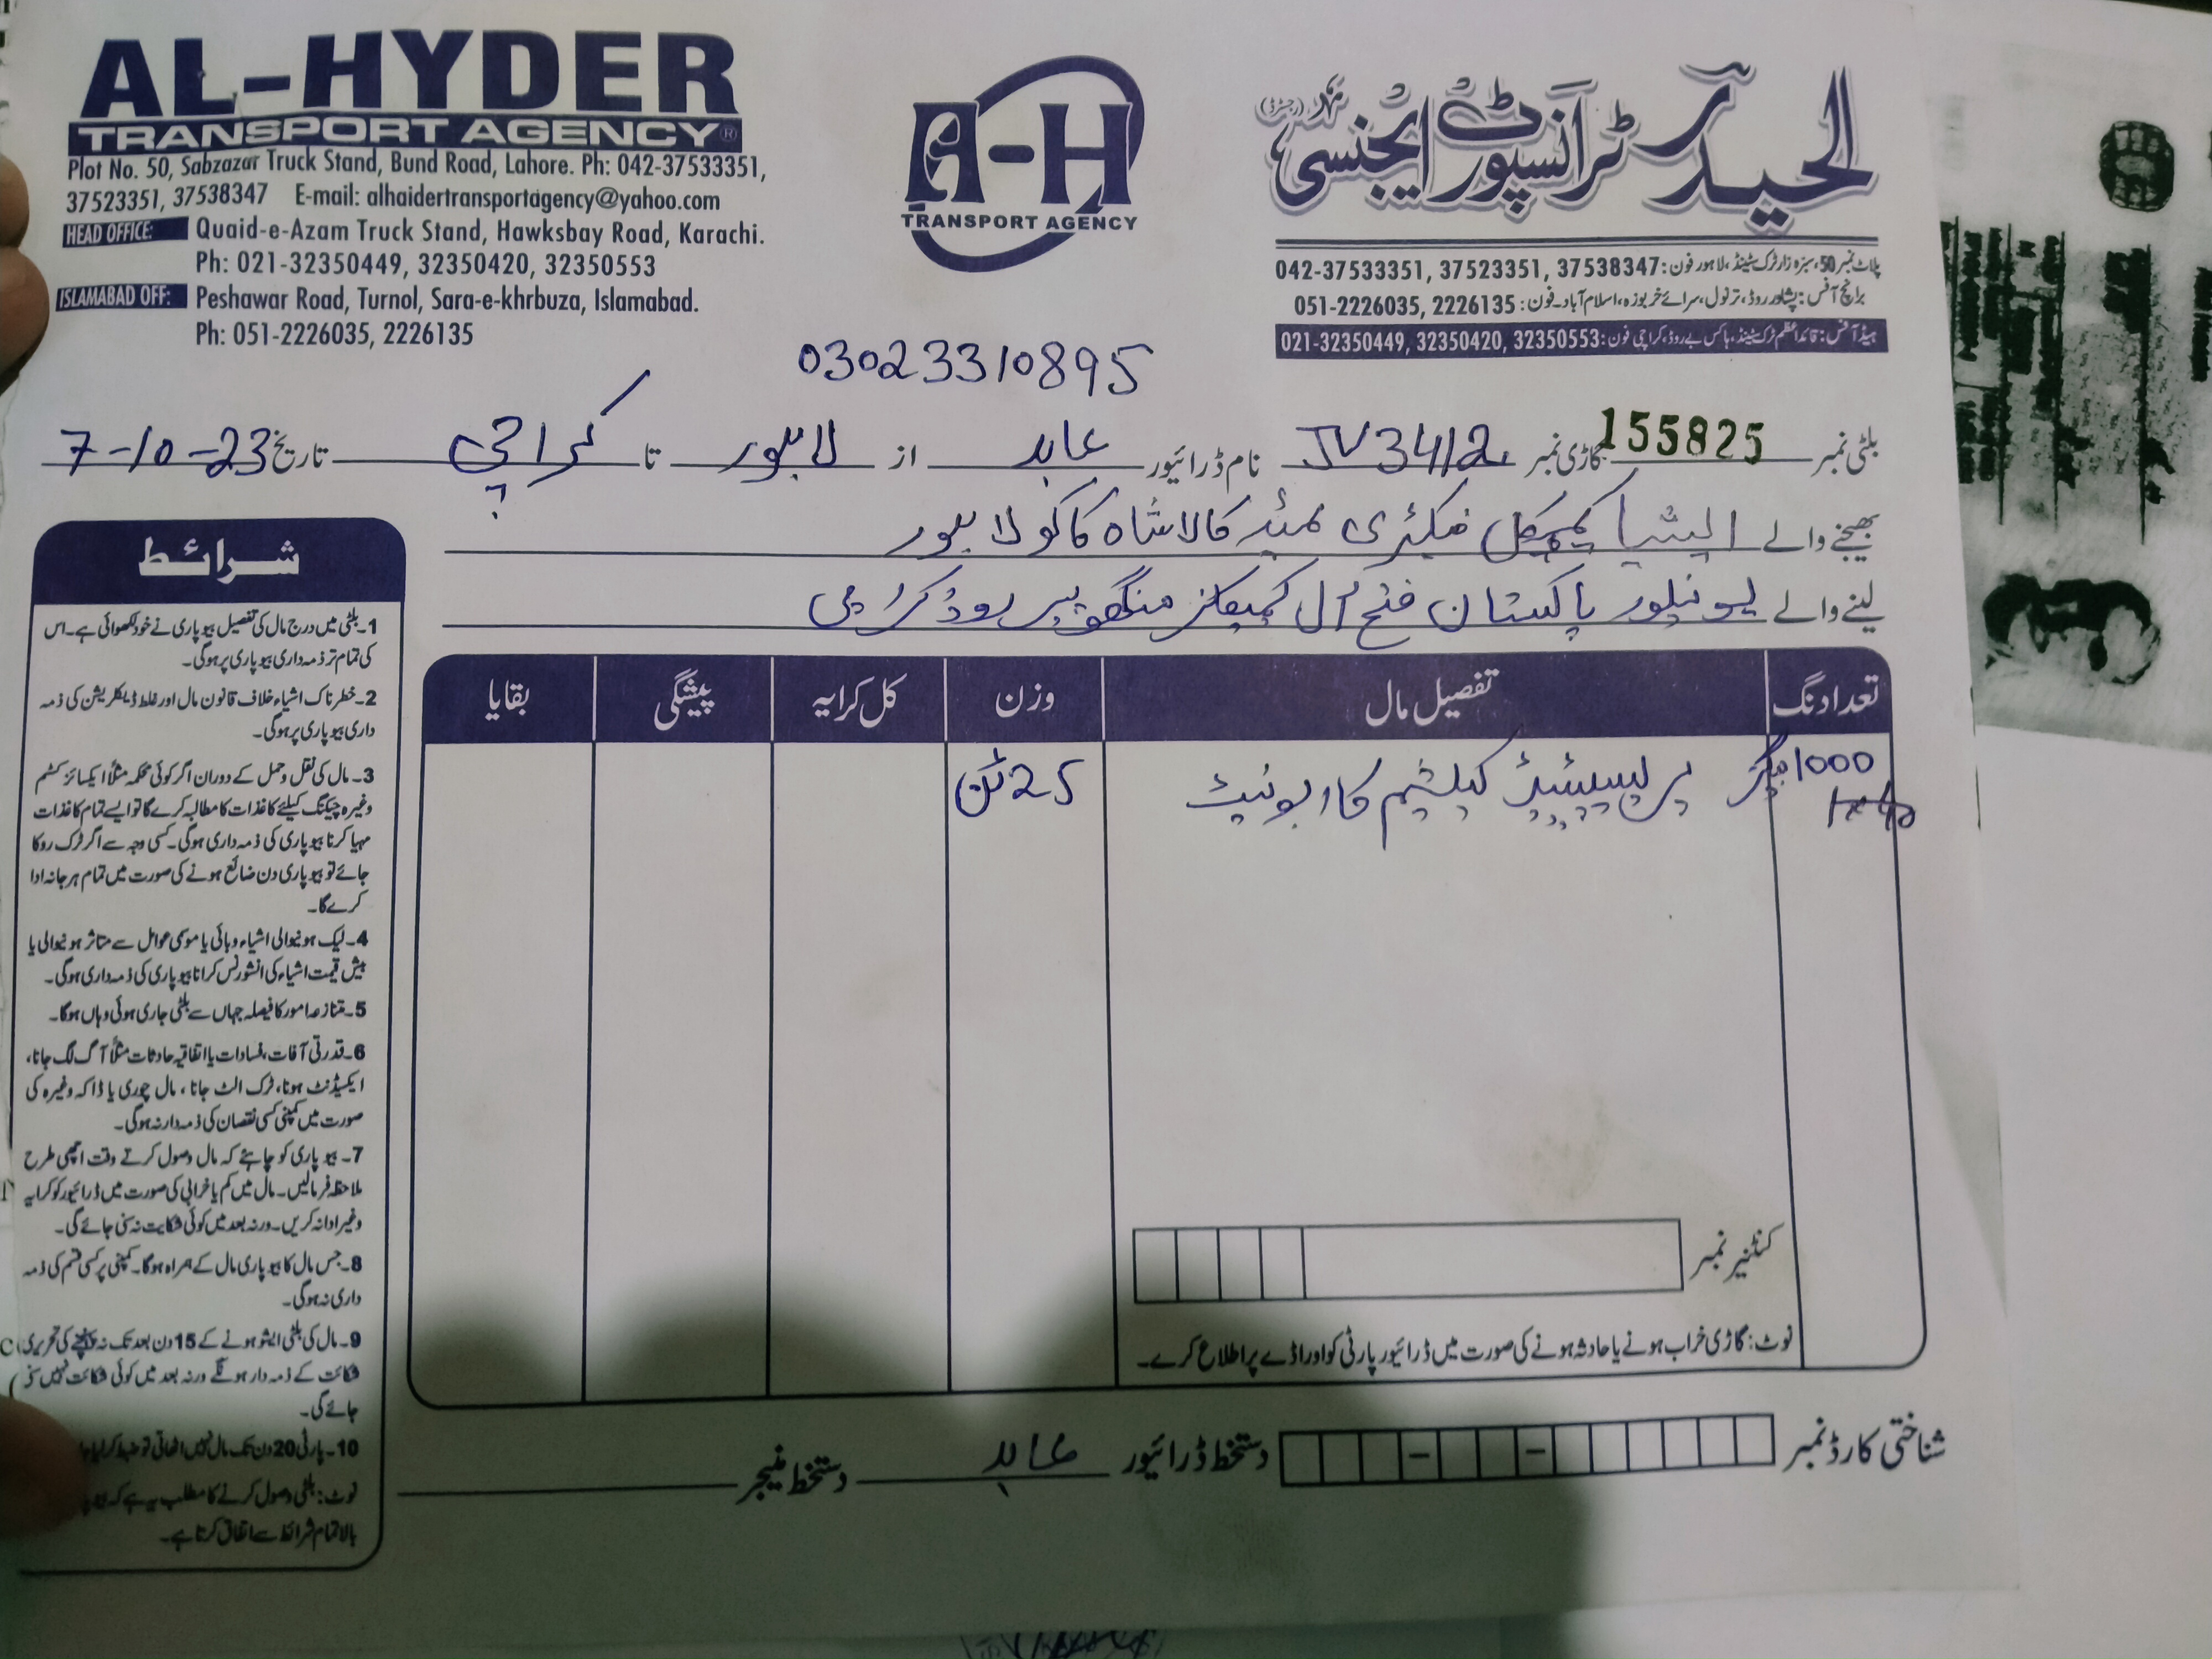 AL-HYDER
TRANSPORT AGENCY®
Plot No. 50, Sabzazar Truck Stand, Bund Road, Lahore. Ph: 042-37533351,
37523351, 37538347 E-mail: alhaidertransportagency@yahoo.com
HEAD OFFICE: Quaid-e-Azam Truck Stand, Hawksbay Road, Karachi.
Ph: 021-32350449, 32350420, 32350553
ISLAMABAD OFF: Peshawar Road, Turnol, Sara-e-khrbuza, Islamabad.
Ph: 051-2226035, 2226135
A-H
TRANSPORT AGENCY
الحیدر ٹرانسپورٹ ایجنسی (رجسٹرڈ)
پلاٹ نمبر 50، سبزہ زار ٹرک سٹینڈ، لاہور فون: 042-37533351, 37523351, 37538347
برانچ آفس: پشاور روڈ، ترنول، سرائے خربوزہ، اسلام آباد۔ فون: 051-2226035, 2226135
ہیڈ آفس: قائداعظم ٹرک سٹینڈ، ہاکس بے روڈ، کراچی فون: 021-32350449, 32350420, 32350553
03023310895
بلٹی نمبر 155825 گاڑی نمبر JV3412 نام ڈرائیور عابد از لاہور تا کراچی تاریخ 7-10-23
بھیجنے والے ایشیا کیمیکل فیکٹری لمیٹڈ کالا شاہ کاکو لاہور
لینے والے یونیلور پاکستان فتح آل کیمیکلز منگھو پیر روڈ کراچی
تعداد نگ تفصیل مال وزن کل کرایہ پیشگی بقایا
1000 بیگز پریسیپیٹیڈ کیلشیم کاربونیٹ 25 ٹن
کنٹنیر نمبر
نوٹ: گاڑی خراب ہونے یا حادثہ ہونے کی صورت میں ڈرائیور پارٹی کو اور اڈے پر اطلاع کرے۔
شناختی کارڈ نمبر دستخط ڈرائیور عابد دستخط منیجر
شرائط
1۔ بلٹی میں درج مال کی تفصیل بیوپاری نے خود لکھوائی ہے۔ اس
کی تمام تر ذمہ داری بیوپاری پر ہوگی۔
2۔ خطرناک اشیاء خلاف قانون مال اور غلط ڈیکلریشن کی ذمہ
داری بیوپاری پر ہوگی۔
3۔ مال کی نقل و حمل کے دوران اگر کوئی محکمہ مثلاً ایکسائز کسٹم
وغیرہ چیکنگ کیلئے کاغذات کا مطالبہ کرے گا تو ایسے تمام کاغذات
مہیا کرنا بیوپاری کی ذمہ داری ہوگی۔ کسی وجہ سے اگر ٹرک روکا
جائے تو بیوپاری دن ضائع ہونے کی صورت میں تمام ہرجانہ ادا
کرے گا۔
4۔ لیک ہونیوالی اشیاء وبائی یا موسمی عوامل سے متاثر ہونیوالی یا
بیش قیمت اشیاء کی انشورنس کرانا بیوپاری کی ذمہ داری ہوگی۔
5۔ متنازعہ امور کا فیصلہ جہاں سے بلٹی جاری ہوئی وہاں ہوگا۔
6۔ قدرتی آفات، فسادات یا اتفاقیہ حادثات مثلاً آگ لگ جانا،
ایکسیڈنٹ ہونا، ٹرک الٹ جانا، مال چوری یا ڈاکہ وغیرہ کی
صورت میں کمپنی کسی نقصان کی ذمہ دار نہ ہوگی۔
7۔ بیوپاری کو چاہئے کہ مال وصول کرتے وقت اچھی طرح
ملاحظہ فرمالیں۔ مال میں کم یا خرابی کی صورت میں ڈرائیور کو کرایہ
وغیرہ ادا نہ کریں۔ ورنہ بعد میں کوئی شکایت نہ سنی جائے گی۔
8۔ جس مال کا بیوپاری مال کے ہمراہ ہوگا۔ کمپنی پر کسی قسم کی ذمہ
داری نہ ہوگی۔
9۔ مال کی بلٹی ایشو ہونے کے 15 دن بعد تک نہ پہنچنے کی تحریری
شکائت کے ذمہ دار ہونگے ورنہ بعد میں کوئی شکائت نہیں سنی
جائے گی۔
10۔ پارٹی 20 دن تک مال نہیں اٹھاتی تو ضبط کر لیا
نوٹ: بلٹی وصول کرنے کا مطلب یہ ہے کہ
بالا تمام شرائط سے اتفاق کرتا ہے۔